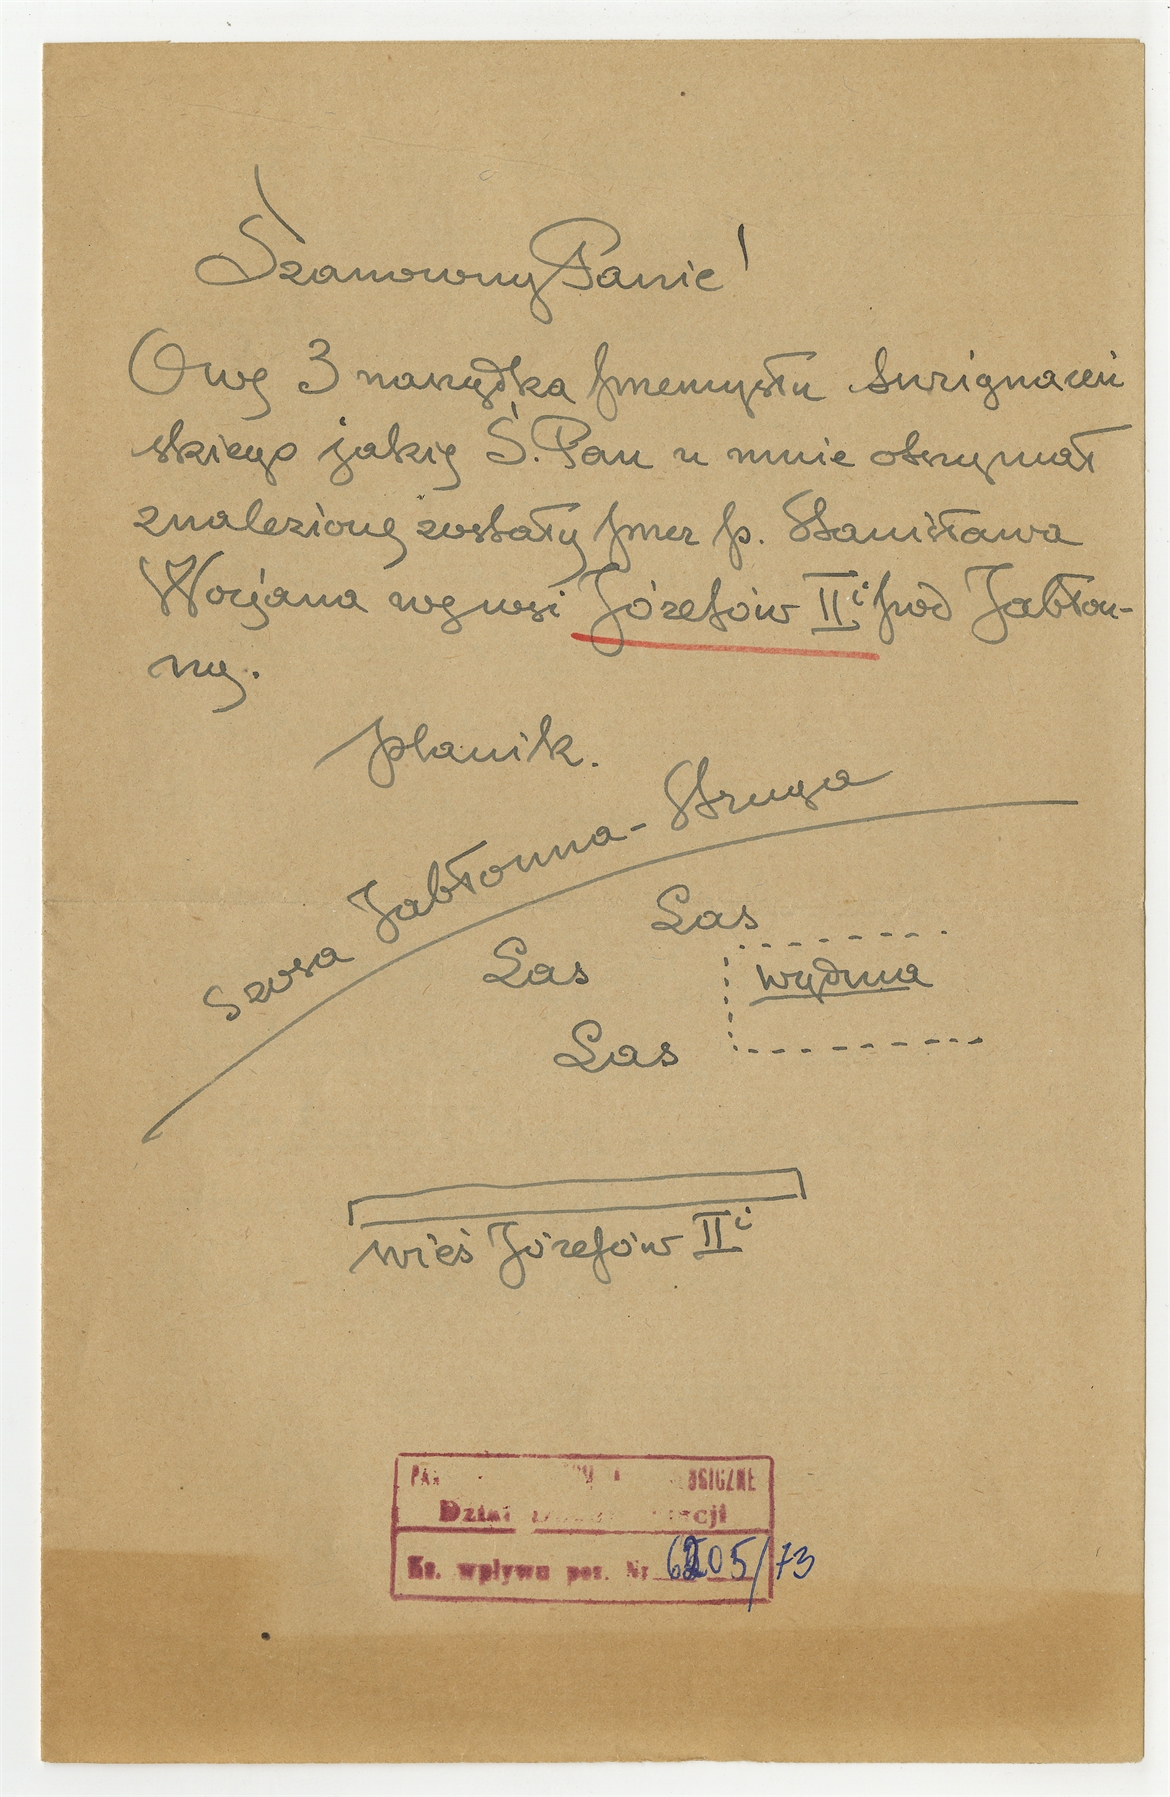 Szanowny Panie!
Owe 3 narzędzka przemysłu śwignaceń
skiego jakie S. Pan u mnie otrzymał
znalezione zostały przez p. Stanisława
Wojana we wsi Józefów II i pod Jabłon-
ny.
planik.
Szosa Jabłonna - Struga
Las
Las
wydma
Las
wieś Józefów II i
Dział
Ks. wpływu poz. Nr 6205/73